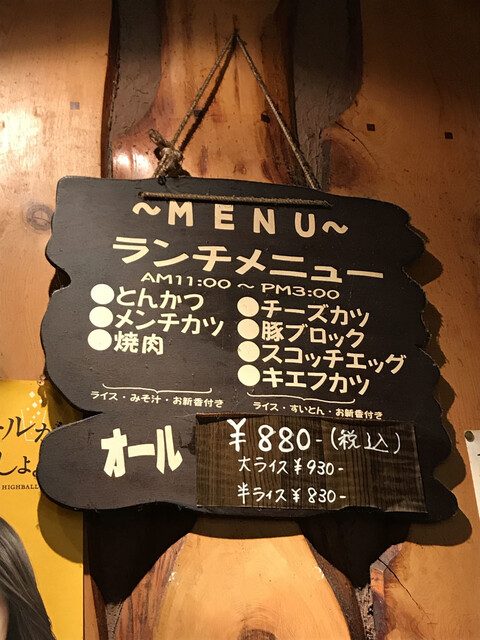 ~MENU~
ランチメニュー
AM11:00 ~ PM3:00
●とんかつ
●メンチカツ
●焼肉
ライス・みそ汁・お新香付き
●チーズカツ
●豚ブロック
●スコッチエッグ
●キエフカツ
ライス・すいとん・お新香付き
オール
¥880-(税込)
大ライス¥930-
半ライス¥830-
ールが
しょ
HIGHBALL